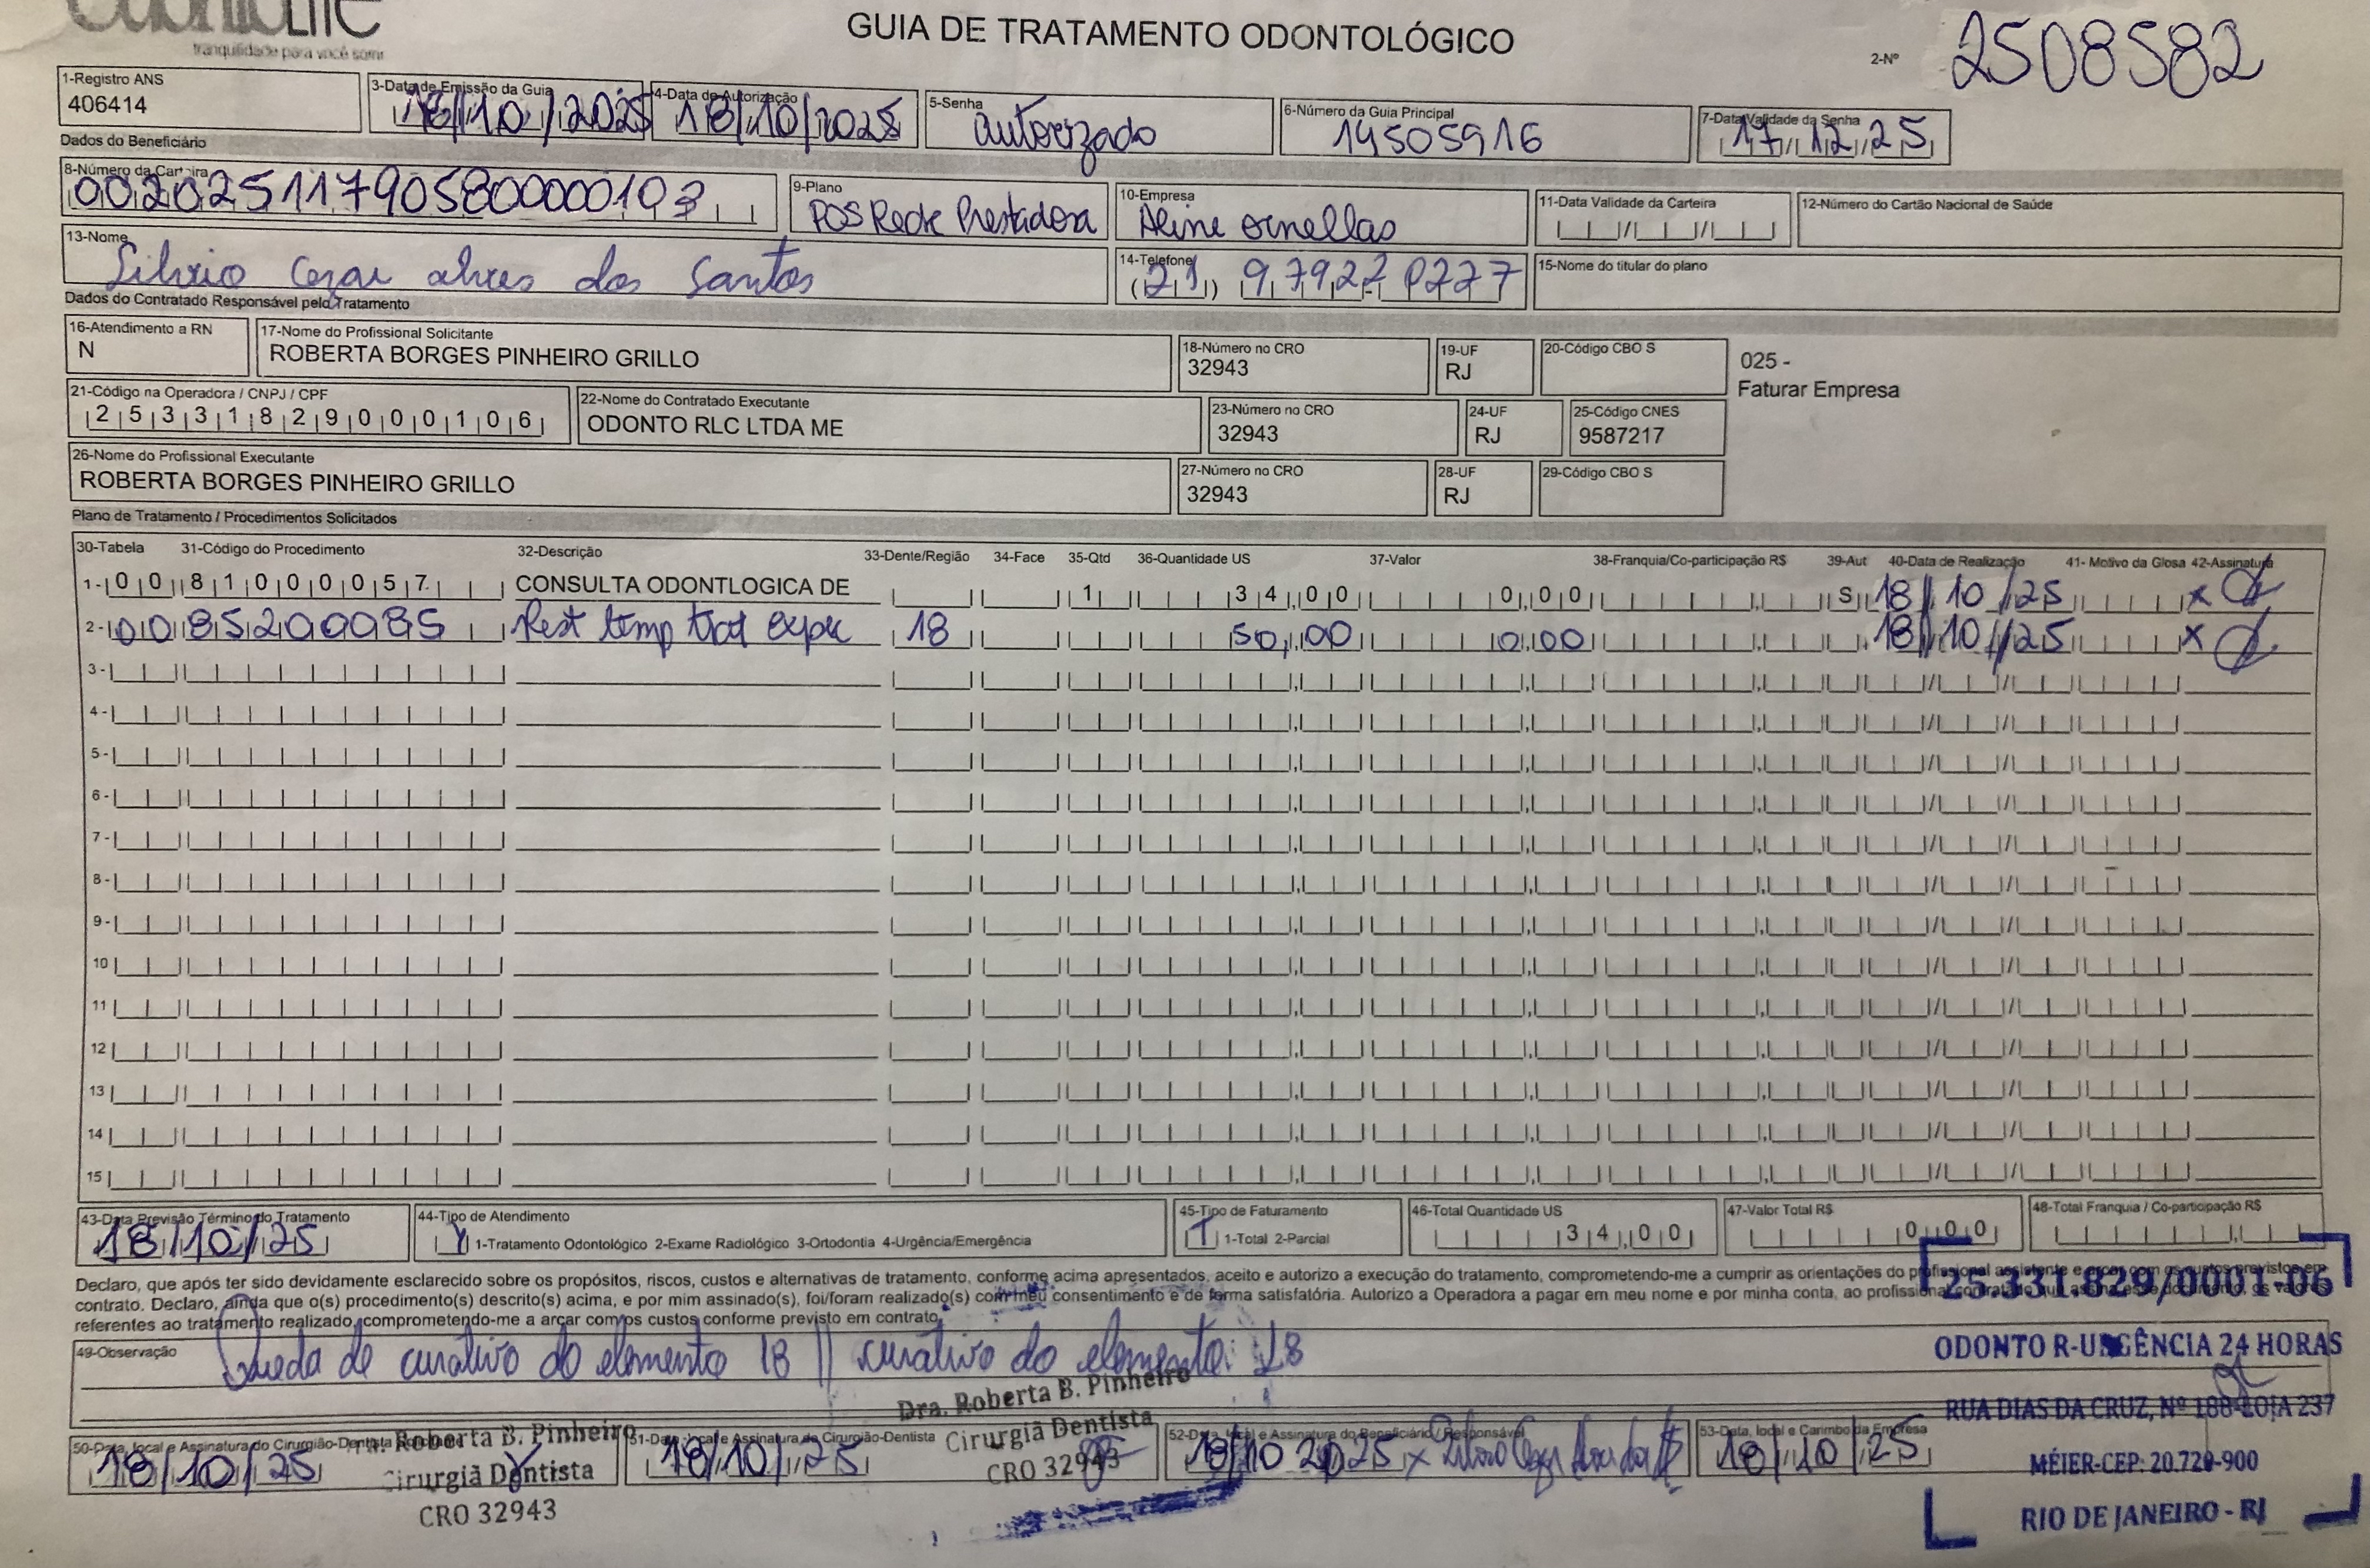 tranquilidade para você sorrir
GUIA DE TRATAMENTO ODONTOLÓGICO
2-Nº 2508582
1-Registro ANS
406414
3-Data de Emissão da Guia
18/10/2025
4-Data de Autorização
18/10/2025
5-Senha
autorizado
6-Número da Guia Principal
14505916
7-Data Validade da Senha
17/12/25
Dados do Beneficiário
8-Número da Carteira
00202511790580000103
9-Plano
POS Rede Prestadora
10-Empresa
Aline Ornellas
11-Data Validade da Carteira
12-Número do Cartão Nacional de Saúde
13-Nome
Silvio Cezar alves dos Santos
14-Telefone
(21) 97922-0277
15-Nome do titular do plano
Dados do Contratado Responsável pelo Tratamento
16-Atendimento a RN
N
17-Nome do Profissional Solicitante
ROBERTA BORGES PINHEIRO GRILLO
18-Número no CRO
32943
19-UF
RJ
20-Código CBO S
025 -
Faturar Empresa
21-Código na Operadora / CNPJ / CPF
25331829000106
22-Nome do Contratado Executante
ODONTO RLC LTDA ME
23-Número no CRO
32943
24-UF
RJ
25-Código CNES
9587217
26-Nome do Profissional Executante
ROBERTA BORGES PINHEIRO GRILLO
27-Número no CRO
32943
28-UF
RJ
29-Código CBO S
Plano de Tratamento / Procedimentos Solicitados
30-Tabela 31-Código do Procedimento 32-Descrição 33-Dente/Região 34-Face 35-Qtd 36-Quantidade US 37-Valor 38-Franquia/Co-participação R$ 39-Aut 40-Data de Realização 41- Motivo da Glosa 42-Assinatura
1- 00 81000057 CONSULTA ODONTLOGICA DE 1 34,00 0,00 S 18/10/25 x
2- 00 85200085 Rest temp trat expec 18 50,00 0,00 18/10/25 x
3-
4-
5-
6-
7-
8-
9-
10
11
12
13
14
15
43-Data Previsão Término do Tratamento
18/10/25
44-Tipo de Atendimento
1-Tratamento Odontológico 2-Exame Radiológico 3-Ortodontia 4-Urgência/Emergência
45-Tipo de Faturamento
1 1-Total 2-Parcial
46-Total Quantidade US
34,00
47-Valor Total R$
0,00
48-Total Franquia / Co-participação R$
Declaro, que após ter sido devidamente esclarecido sobre os propósitos, riscos, custos e alternativas de tratamento, conforme acima apresentados, aceito e autorizo a execução do tratamento, comprometendo-me a cumprir as orientações do profissional assistente e arcar com os custos previstos em
contrato. Declaro, ainda que o(s) procedimento(s) descrito(s) acima, e por mim assinado(s), foi/foram realizado(s) com meu consentimento e de forma satisfatória. Autorizo a Operadora a pagar em meu nome e por minha conta, ao profissional contratado que assina esse documento, os valores
referentes ao tratamento realizado, comprometendo-me a arcar com os custos conforme previsto em contrato.
25.331.829/0001-06
ODONTO R-URGÊNCIA 24 HORAS
RUA DIAS DA CRUZ, Nº 188-LOJA 237
MÉIER-CEP: 20.720-900
RIO DE JANEIRO - RJ
49-Observação
Queda de curativo do elemento 18 || curativo do elemento 18
50-Data, local e Assinatura do Cirurgião-Dentista
18/10/25
Roberta B. Pinheiro
Cirurgiã Dentista
CRO 32943
51-Data, local e Assinatura do Cirurgião-Dentista
18/10/25
Dra. Roberta B. Pinheiro
Cirurgiã Dentista
CRO 32943
52-Data, local e Assinatura do Beneficiário / Responsável
18/10 2025 x
53-Data, local e Carimbo da Empresa
18/10/25